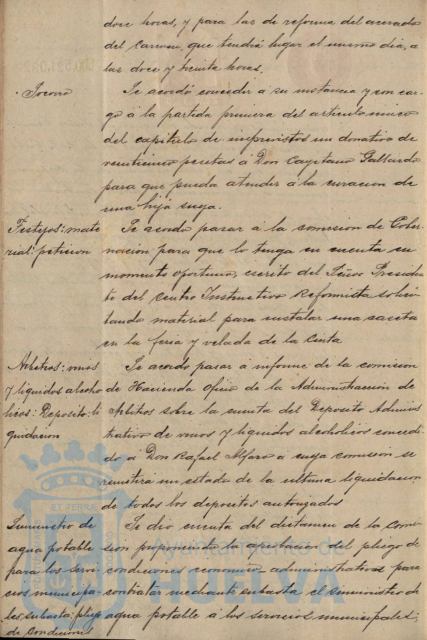 doce horas, y para las de reforma del acerado
del Carmen, que tendrá lugar el mismo día, a
las doce y treinta horas.
Socorro
Se acordó conceder á su instancia y con car-
go á la partida primera del articulo único
del capítulo de imprevistos un donativo de
veinticinco pesetas á Don Cayetano Gallardo
para que pueda atender á la curacion de
una hija suya.
Festejos: mate-
rial: peticion
Se acordo pasar a la comision de Gober-
nacion para que lo tenga en cuenta en
momento oportuno, escrito del Señor Presiden-
te del Centro Instructivo Reformista solici-
tando material para instalar una caseta
en la feria y velada de la Cinta
Arbitrios: vinos
y liquidos alcoho-
licos: Deposito: li-
quidacion
Se acordo pasar á informe de la comision
de Hacienda Oficio de la Administracion de
Arbitrios sobre la cuenta del Deposito Adminis-
trativo de vinos y liquidos alcoholicos concedi-
do á Don Rafael Alfaro á cuya comision se
remitira un estado de la ultima liquidacion
de todos los depositos autorizados
Suministro de
agua potable
para los servi-
cios municipa-
les: subasta: pliego
de condiciones
Se dio cuenta del dictamen de la Comi-
sion proponiendo la aprobacion del pliego de
condiciones economico administrativas para
contratar mediante subasta el suministro de
agua potable á los servicios municipales;
Ayuntamiento de
HUELVA